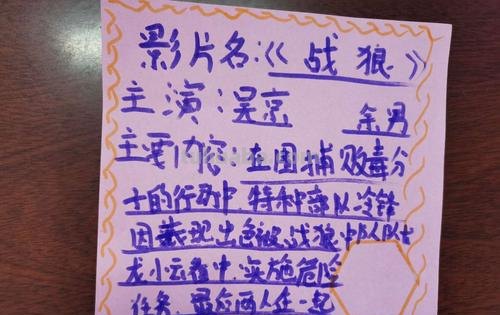 影片名:《战狼》
主演:吴京 余男
主要内容:在围捕贩毒分
士的行动中,特种部队冷锋
因表现出色被战狼中队队士
龙小云看中,实施危险
任务,最后两人在一起